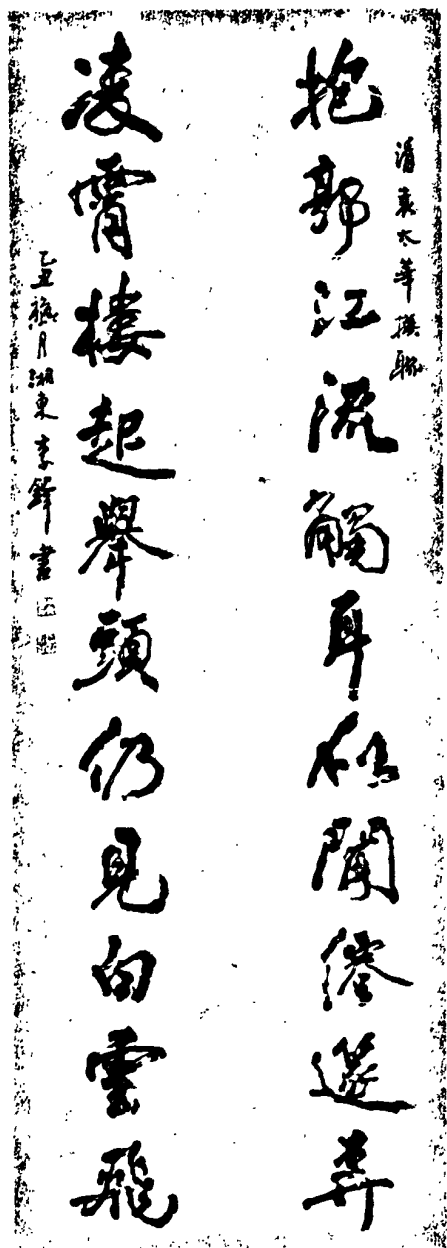 清袁太華撰聯
抱郭江流觸耳似聞篴弄
凌霄樓起舉頭仍見白雲飛
乙丑月湘東李鐸書